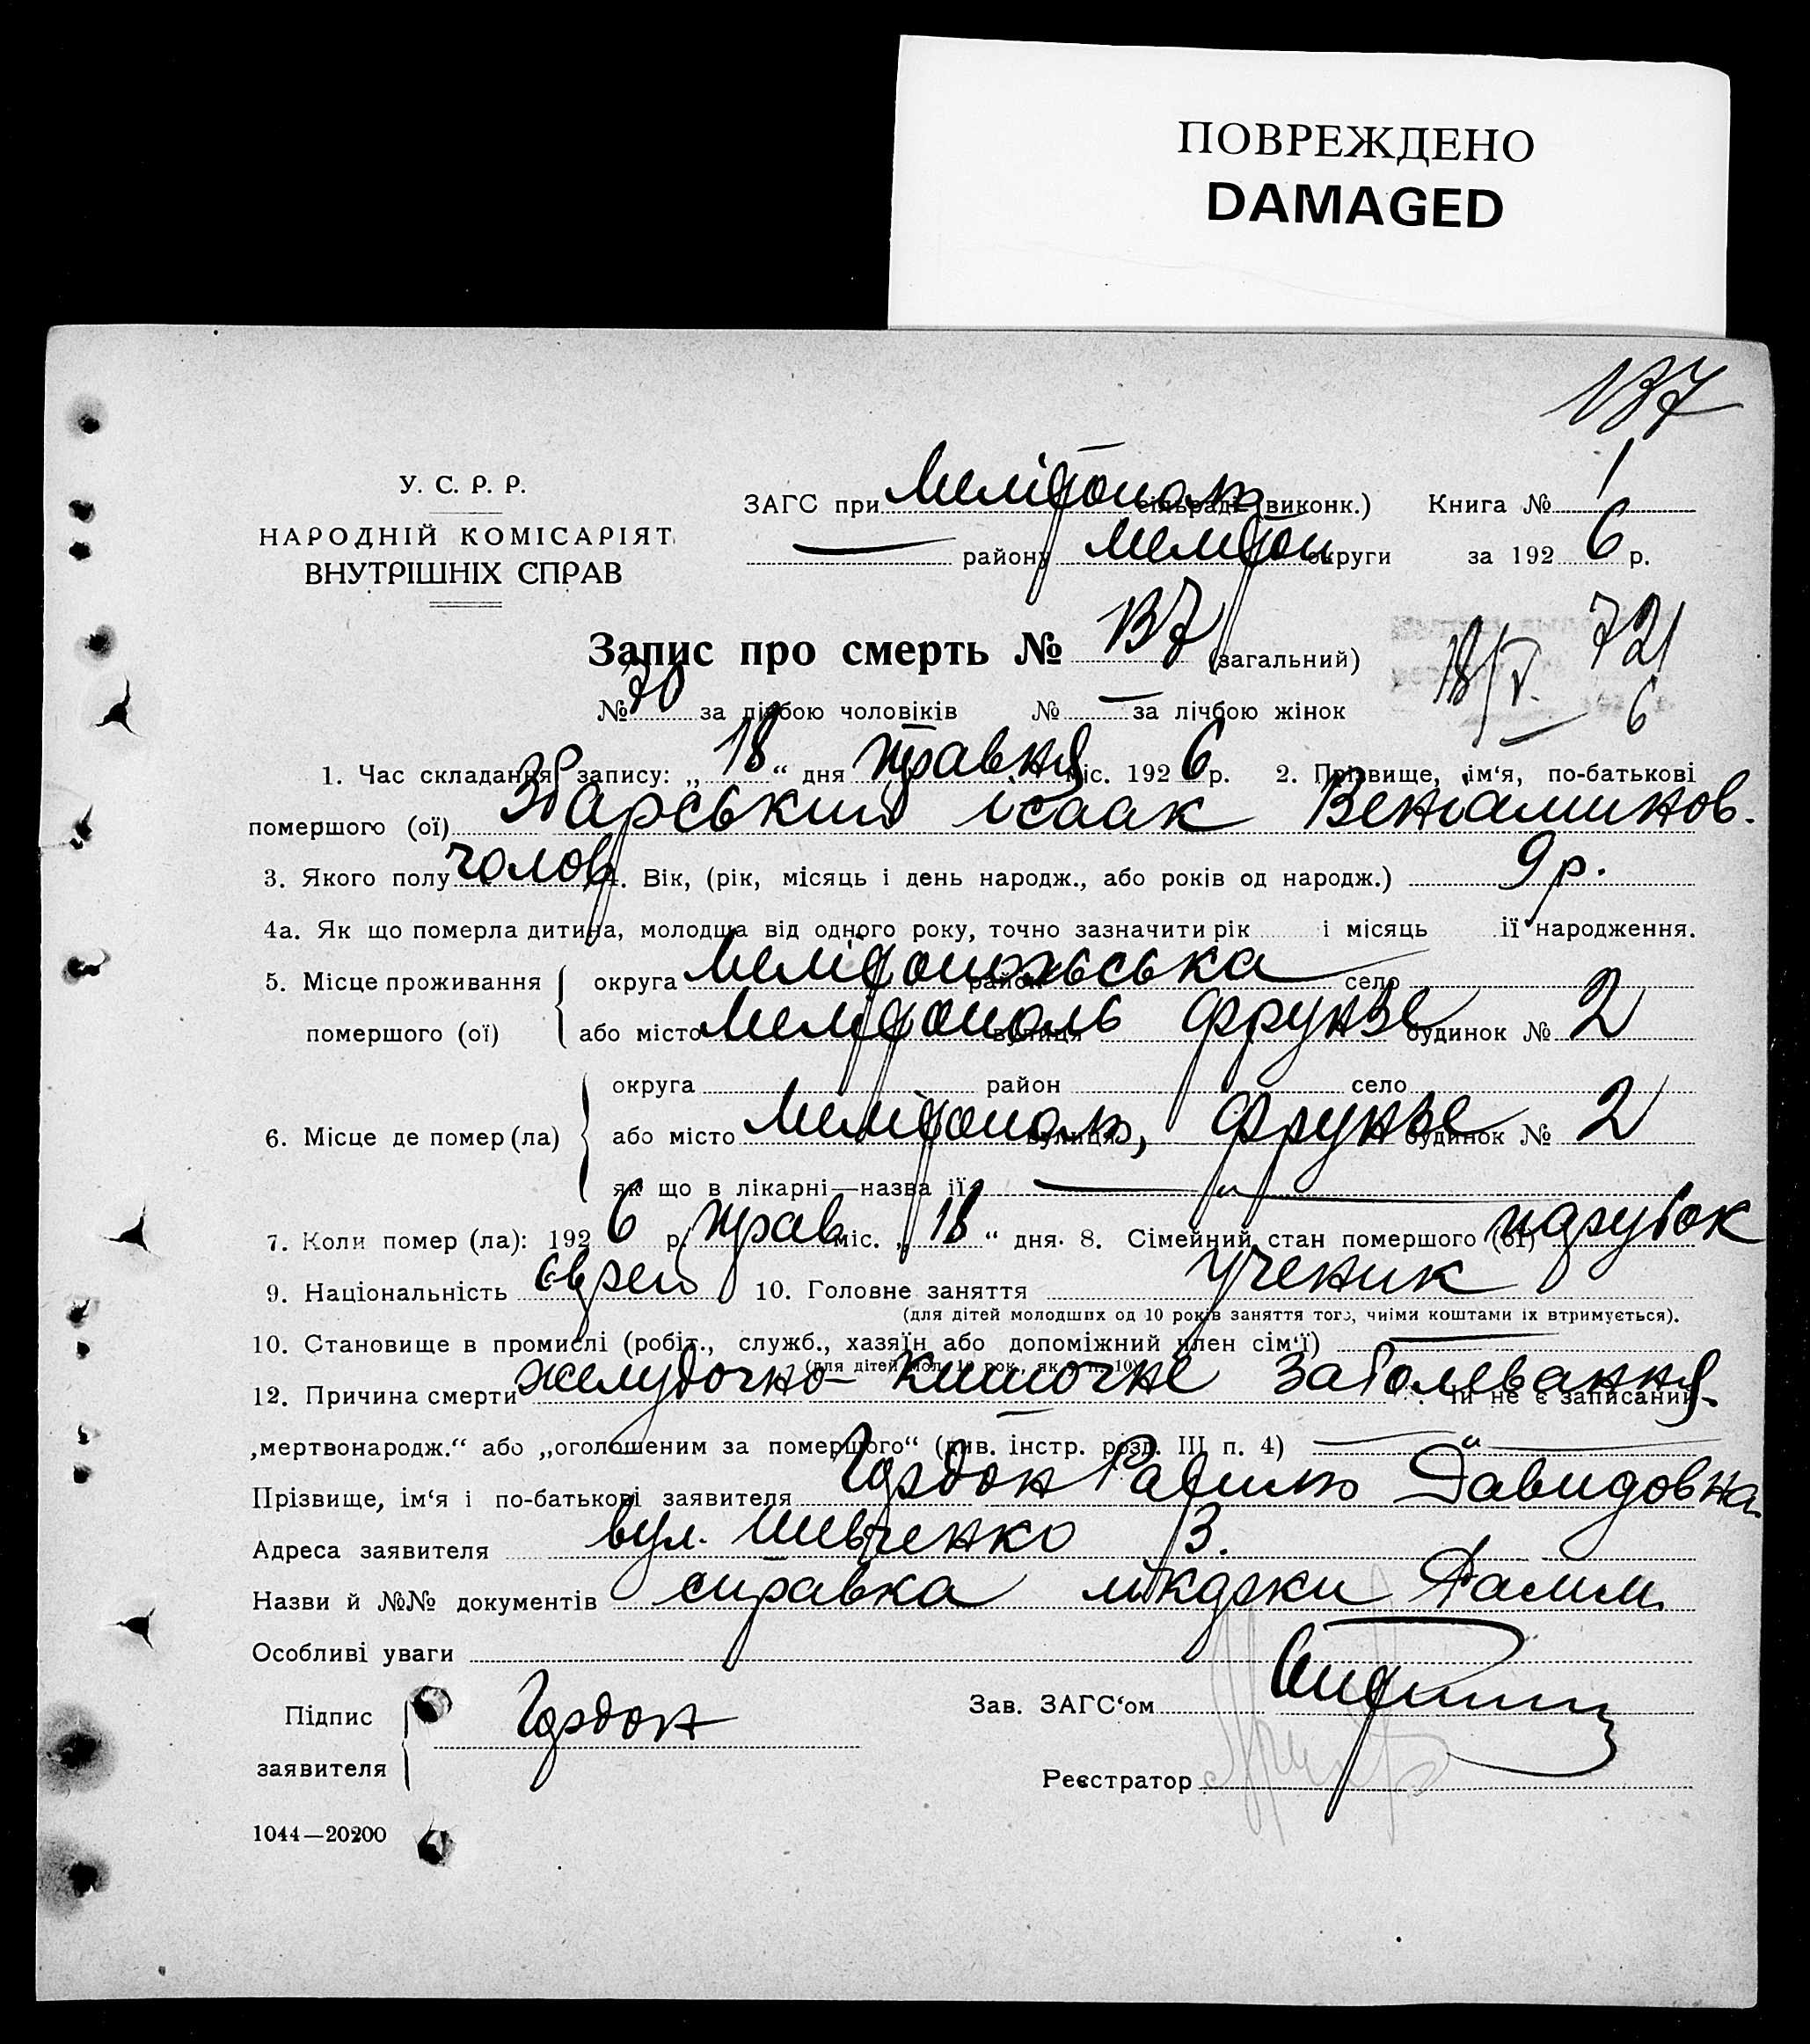 ПОВРЕЖДЕНО
DAMAGED
137
У. С. Р. Р.
НАРОДНІЙ КОМІСАРІЯТ
ВНУТРІШНІХ СПРАВ
ЗАГС при Мелітополь сільраді (виконк.) Книга № 1
— району Меліtoп округи за 1926 р.
Запис про смерть № 137 (загальний)
18/V. 721
6
№ 70 за лічбою чоловіків № — за лічбою жінок
1. Час складання запису: „18“ дня травня міс. 1926 р. 2. Прізвище, ім‘я, по-батькові
помершого (ої) Збарський Ісаак Веніаминов.
3. Якого полу чолов. 4. Вік, (рік, місяць і день народж., або років од народж.) 9 р.
4а. Як що померла дитина, молодша від одного року, точно зазначити рік і місяць її народження.
5. Місце проживання округа Мелітопольська район село
помершого (ої) або місто Мелітополь вулиця Фрунзе будинок № 2
округа район село
6. Місце де помер (ла) або місто Мелітополь, вулиця Фрунзе будинок № 2
як що в лікарні—назва її — „ —
7. Коли помер (ла): 1926 р. трав міс. „18“ дня. 8. Сімейний стан помершого (ої) парубок
9. Національність Єврей 10. Головне заняття Ученик
(для дітей молодших од 10 років заняття того, чиїми коштами їх втримується).
10. Становище в промислі (робіт., служб., хазяїн або допоміжний член сім‘ї) —
(для дітей мол. 10 рок., як в п. 10)
12. Причина смерти желудочно-кишочне заболевання. Чи не є записаний
„мертвонародж.“ або „оголошеним за помершого“ (див. інстр. розд. III п. 4) — „ —
Прізвище, ім‘я і по-батькові заявителя Гордон Рахиль Давидовна
Адреса заявителя вул. Шевченко 3.
Назви й №№ документів справка
Особливі уваги
Підпис
заявителя Гордон
Зав. ЗАГС‘ом
Реєстратор
1044—20200